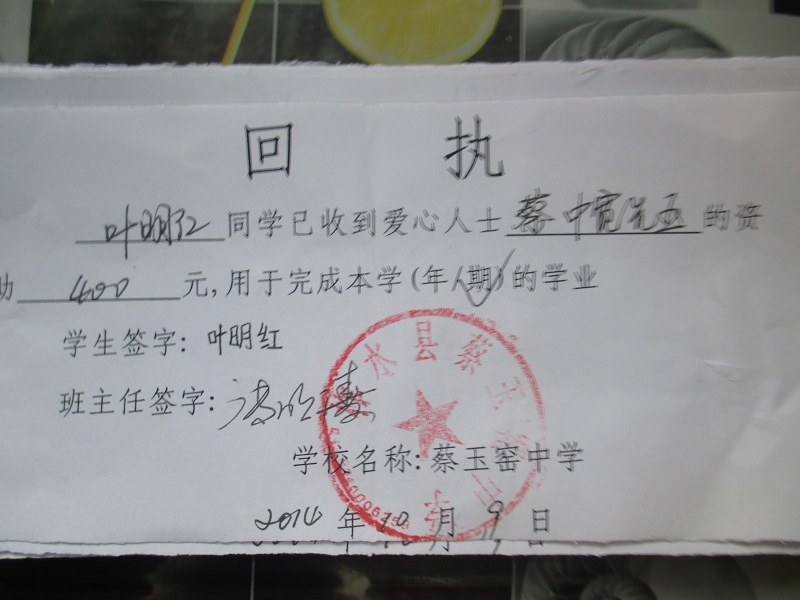 回 执
叶明红同学已收到爱心人士蔡中宽先生的资
助400元,用于完成本学(年/期)的学业
学生签字:叶明红
班主任签字:
学校名称:蔡玉窑中学
2014年10月9日
水县蔡玉